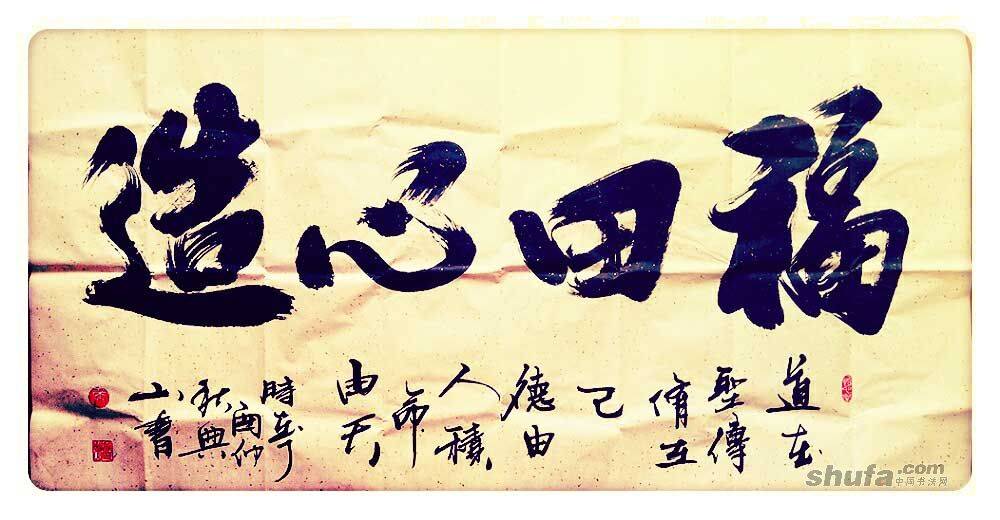 福田心造
道在
聖傳
脩在
己
德由
人積
命
由天
時在丁
酉仲
秋興
山書
shufa.com
中国书法网